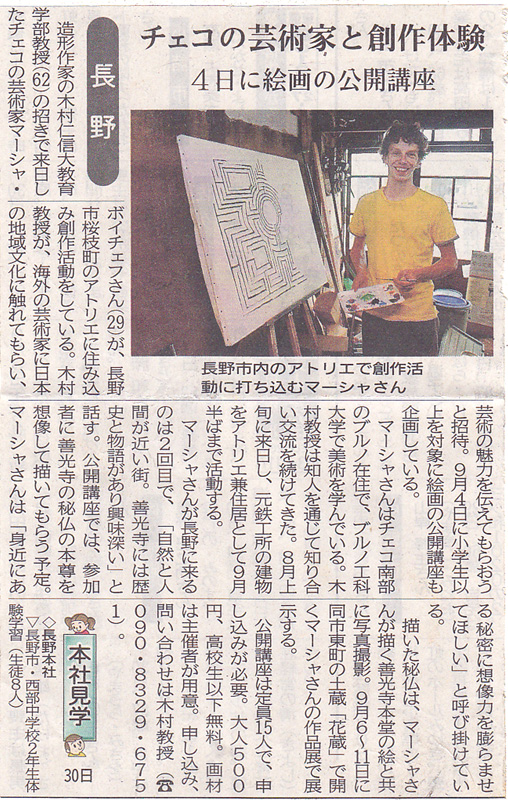 チェコの芸術家と創作体験
4日に絵画の公開講座
長野
造形作家の木村仁信大教育
学部教授(62)の招きで来日し
たチェコの芸術家マーシャ・
ボイチェフさん(29)が、長野
市桜枝町のアトリエに住み込
み創作活動をしている。木村
教授が、海外の芸術家に日本
の地域文化に触れてもらい、
長野市内のアトリエで創作活
動に打ち込むマーシャさん
芸術の魅力を伝えてもらおう
と招待。9月4日に小学生以
上を対象に絵画の公開講座も
企画している。
マーシャさんはチェコ南部
のブルノ在住で、ブルノ工科
大学で美術を学んでいる。木
村教授は知人を通じて知り合
い交流を続けてきた。8月上
旬に来日し、元鉄工所の建物
をアトリエ兼住居として9月
半ばまで活動する。
マーシャさんが長野に来る
のは2回目で、「自然と人
間が近い街。善光寺には歴
史と物語があり興味深い」と
話す。公開講座では、参加
者に善光寺の秘仏の本尊を
想像して描いてもらう予定。
マーシャさんは「身近にあ
る秘密に想像力を膨らませ
てほしい」と呼び掛けてい
る。
描いた秘仏は、マーシャさ
んが描く善光寺本堂の絵と共
に写真撮影。9月6〜11日に
同市東町の土蔵「花蔵」で開
くマーシャさんの作品展で展
示する。
公開講座は定員15人で、申
し込みが必要。大人500
円、高校生以下無料。画材
は主催者が用意。申し込み、
問い合わせは木村教授(☎
090・8329・675
1)。
本社見学
30日
◇長野本社
▽長野市・西部中学校2年生体
験学習(生徒8人)